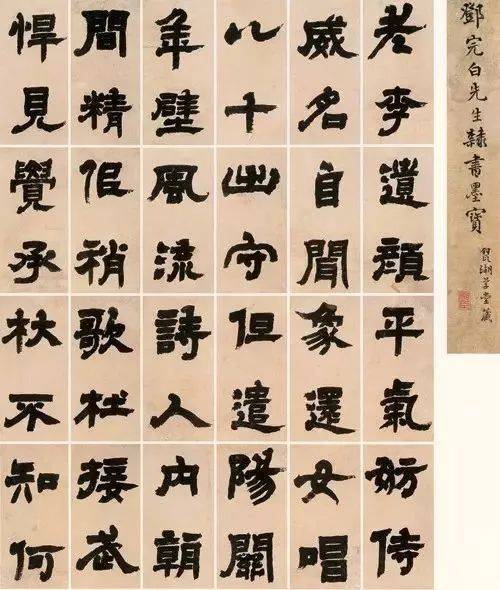 鄧完白先生隸書墨寶
草堂藏
老李
威名
八十
年壁
間精
悍見
遺顏
自聞
出守
風流
佀稍
覺承
平氣
象還
但遣
詩人
歌杕
杜不
妨侍
女唱
陽關
內朝
接武
知何